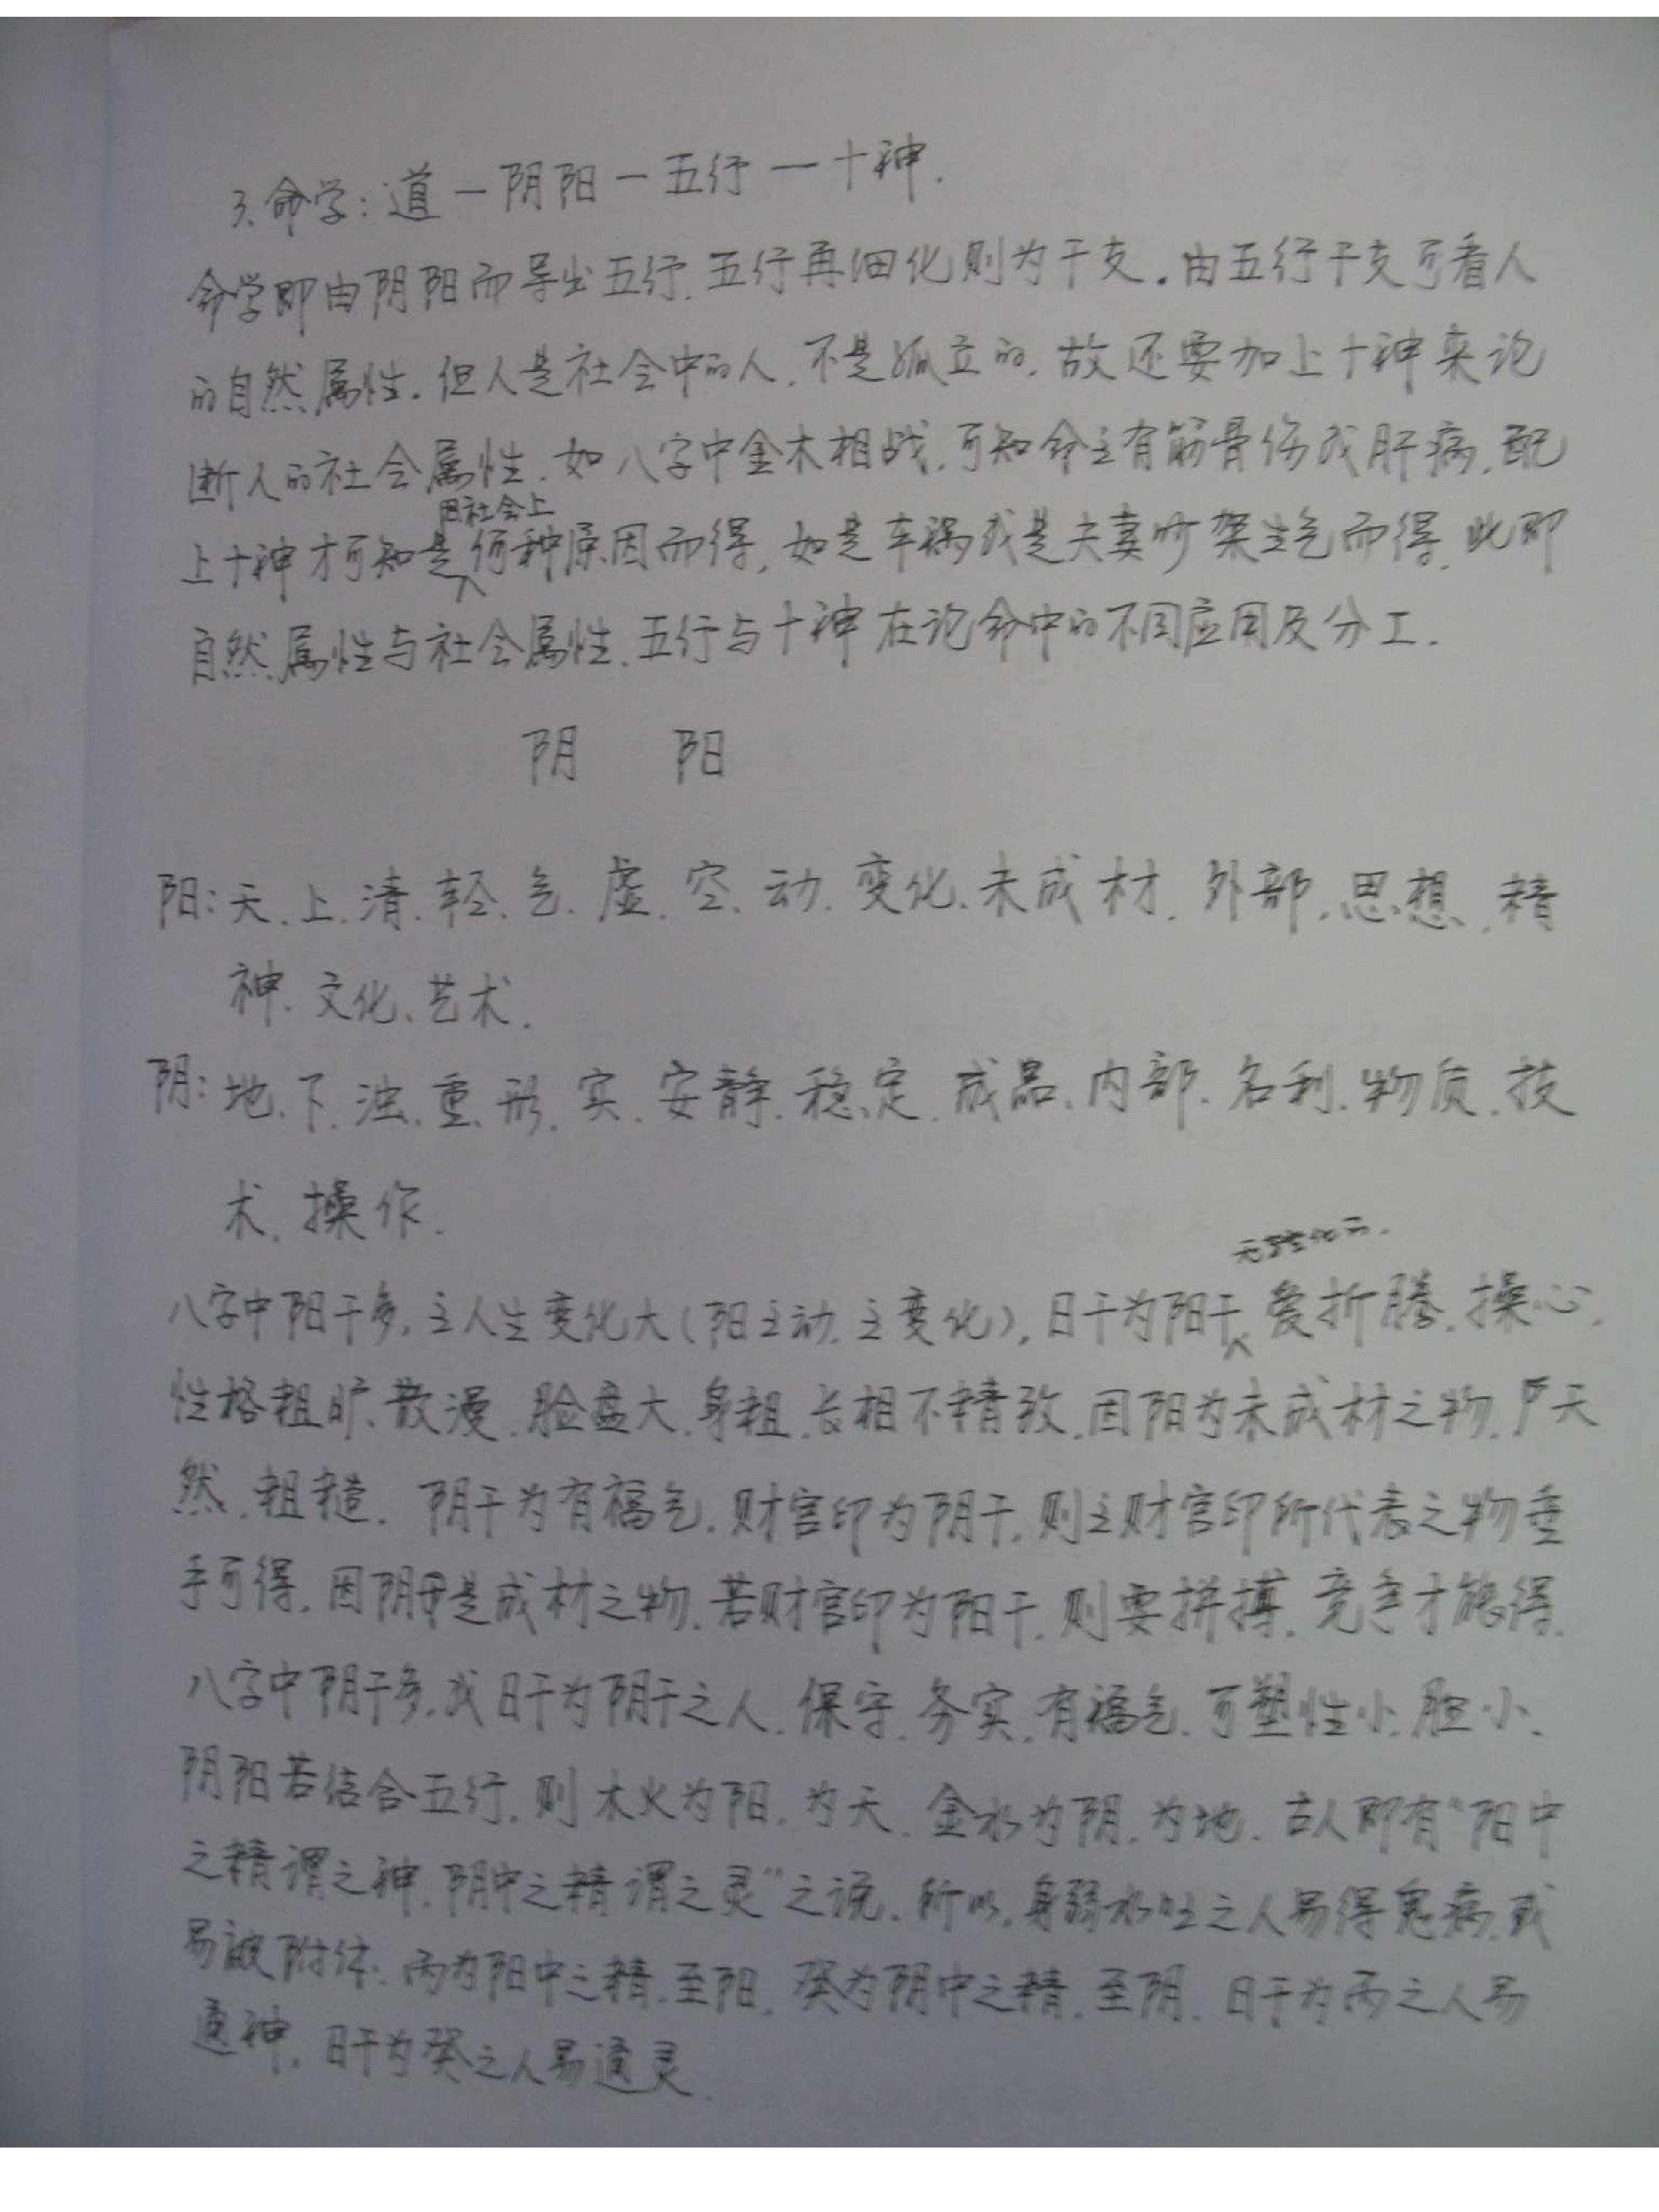 3、命学：道－阴阳－五行－十神.
命学即由阴阳而导出五行.五行再细化则为干支。由五行干支可看人
的自然属性。但人是社会中的人.不是孤立的.故还要加上十神来论
断人的社会属性.如八字中金木相战.可知命主有筋骨伤或肝病.配
因社会上
上十神才可知是何种原因而得,如是车祸或是夫妻吵架生气而得.此即
自然属性与社会属性.五行与十神在论命中的不同应用及分工.
阴 阳
阳:天.上.清.轻.气.虚.空.动.变化.未成材.外部.思想.精
神.文化、艺术.
阴:地.下.浊.重.形.实.安静.稳定.成品.内部.名利.物质.技
术.操作.
八字中阳干多,主人生变化大(阳主动.主变化),日干为阳干爱折腾.操心.
性格粗旷.散漫.脸盘大.身粗.长相不精致.因阳为未成材之物.天
然.粗糙. 阴干为有福气.财官印为阴干.则主财官印所代表之物垂
手可得.因阴是成材之物.若财官印为阳干.则要拼搏.竞争才能得.
八字中阴干多,或日干为阴干之人.保守.务实.有福气.可塑性小.胆小.
阴阳若结合五行.则木火为阳.为天.金水为阴.为地.古人即有“阳中
之精谓之神.阴中之精谓之灵”之说.所以.身弱水旺之人易得鬼病.或
易被附体.丙为阳中之精.至阳.癸为阴中之精.至阴.日干为丙之人易
通神,日干为癸之人易通灵.